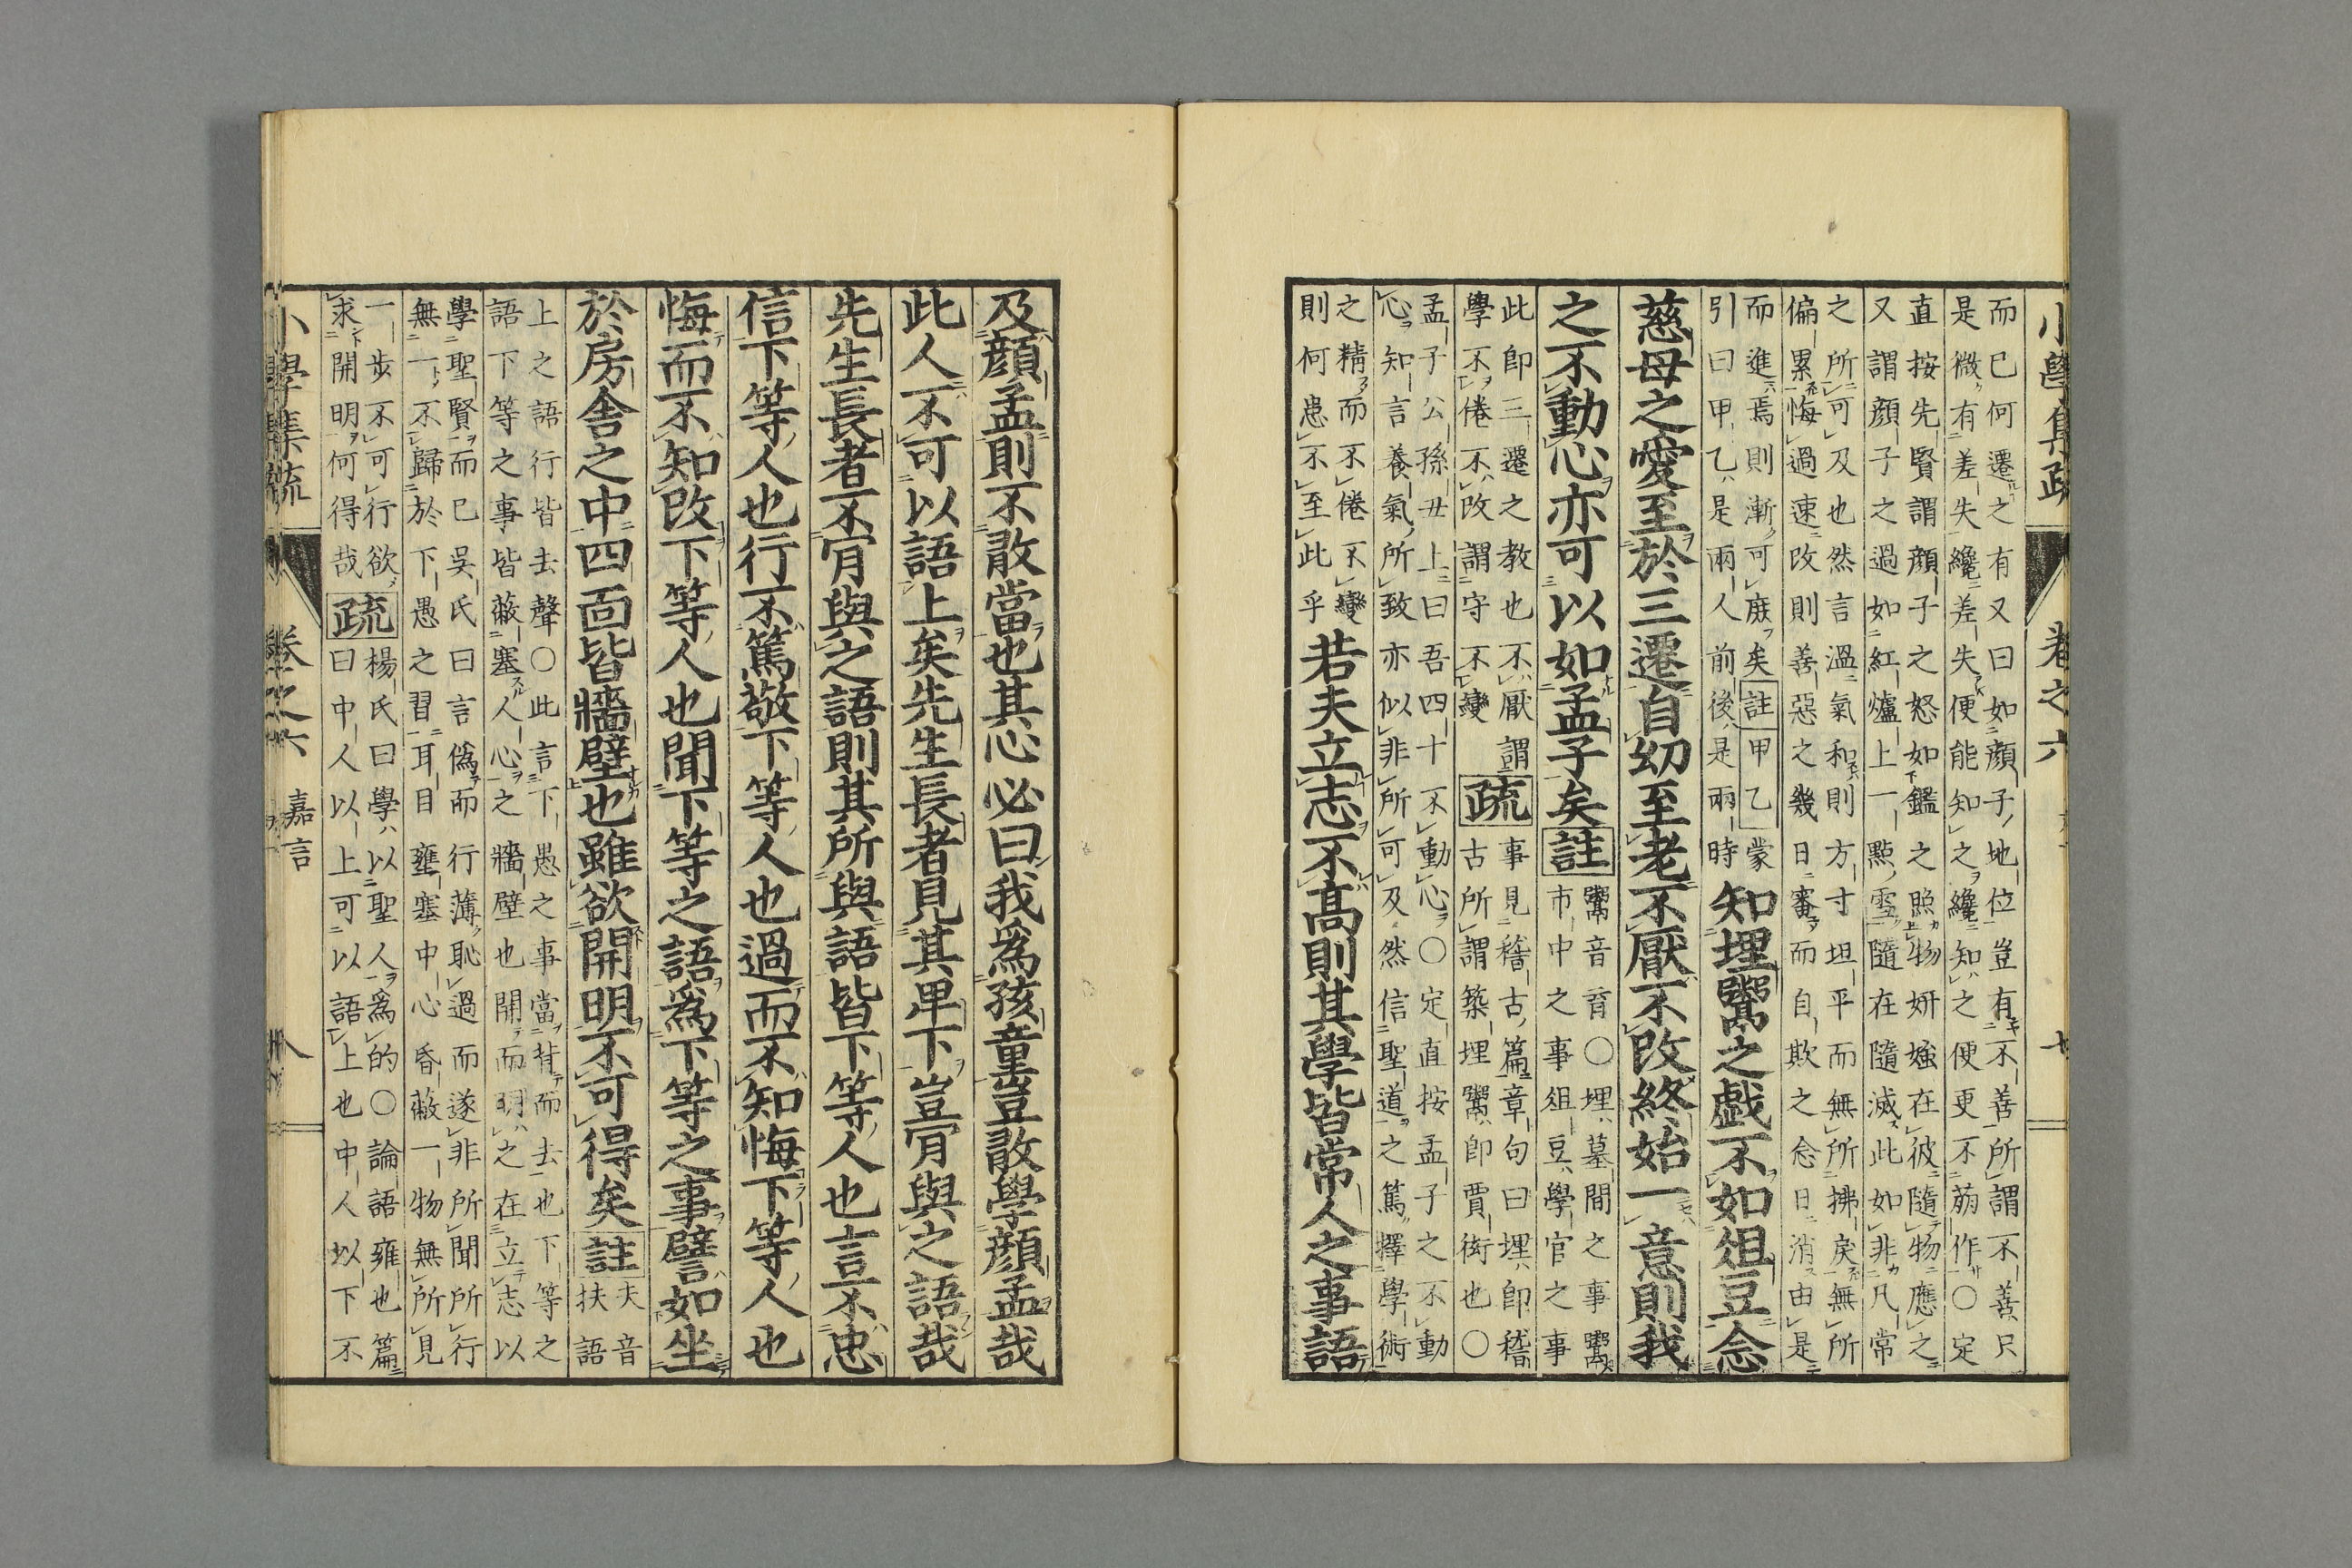 小學集疏
卷之六
而已何遷之有又曰如顔子地位豈有不善所謂不善只
是微有差失纔差失便能知之纔知之便更不萠作○定
直按先賢謂顔子之怒如鑑之照物妍媸在彼隨物應之
又謂顔子之過如紅爐上一點雪隨在隨滅此如非凡常
之所可及也然言溫氣和則方寸坦平而無所拂戾無所
偏累悔過速改則善惡之幾日審而自欺之念日消由是
而進焉則漸可庶矣註甲乙蒙
引曰甲乙是兩人前後是兩時
知埋鬻之戯不如俎豆念
慈母之愛至於三遷自幼至老不厭不改終始一意則我
之不動心亦可以如孟子矣註
鬻音育○埋墓間之事鬻
市中之事俎豆學官之事
此卽三遷之教也不厭謂
學不倦不改謂守不變
疏
事見稽古篇章句曰埋卽嵆
古所謂築埋鬻卽賈衒也○
孟子公孫丑上曰吾四十不動心○定直按孟子之不動
心知言養氣所致亦似非所可及然信聖道之篤擇學術
之精而不倦不變
則何患不至此乎
若夫立志不高則其學皆常人之事語
及顔孟則不敢當也其心必曰我爲孩童豈敢學顔孟哉
此人不可以語上矣先生長者見其卑下豈肎與之語哉
先生長者不肎與之語則其所與語皆下等人也言不忠
信下等人也行不篤敬下等人也過而不知悔下等人也
悔而不知改下等人也聞下等之語爲下等之事譬如坐
於房舎之中四面皆牆壁也雖欲開明不可得矣註
夫音
扶語
上之語行皆去聲○此言下愚之事當背而去也下等之
語下等之事皆蔽塞人心之牆壁也開而明之在立志以
學聖賢而已吳氏曰言僞而行薄恥過而遂非所聞所行
無一不歸於下愚之習耳目壅塞中心昏蔽一物無所見
一步不可行欲
求開明何得哉
疏
楊氏曰學以聖人爲的○論語雍也篇
曰中人以上可以語上也中人以下不
小學集疏
卷之六
嘉言
八